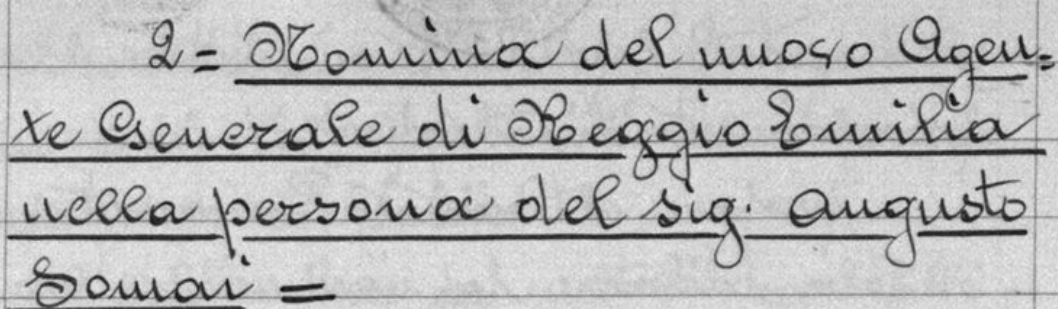 2= Nomina del nuovo Agen=
te Generale di Reggio Emilia
nella persona del sig. Augusto
Somai =